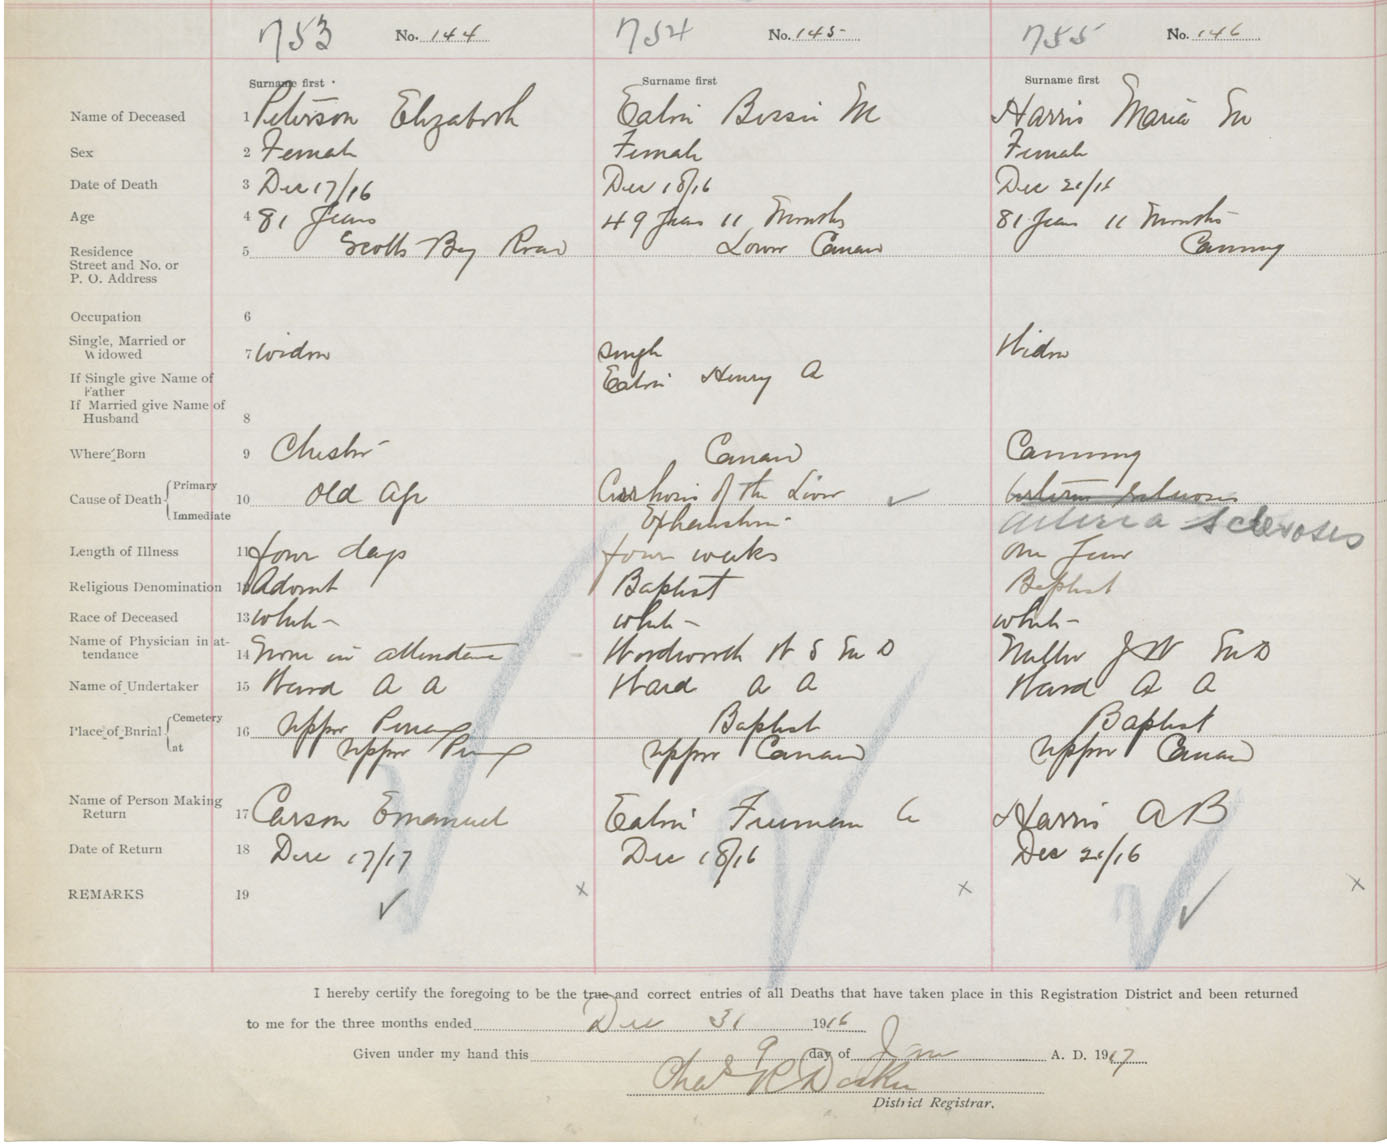 753 No. 144 754 No. 145 755 No. 146
Surname first Surname first Surname first
Name of Deceased 1 Peterson Elizabeth Eaton Bessie M Harris Maria M
Sex 2 Female Female Female
Date of Death 3 Dec 17/16 Dec 18/16 Dec 21/16
Age 4 81 Years 49 Years 11 Months 81 Years 11 Months
Residence 5 Scotts Bay Road Lower Canard Canning
Street and No. or
P. O. Address
Occupation 6
Single, Married or
Widowed 7 widow single Widow
If Single give Name of
Father Eaton Henry A
If Married give Name of
Husband 8
Where Born 9 Chester Canard Canning
Cause of Death Primary Immediate 10 Old Age Cirrhosis of the Liver
Exhaustion Arteria Scleroses
Length of Illness 11 four days four weeks one Year
Religious Denomination 12 Advent Baptist Baptist
Race of Deceased 13 white white white
Name of Physician in at-
tendance 14 None in attendance Wordsworth W S M D Miller J W M D
Name of Undertaker 15 Ward A A Ward A A Ward A A
Place of Burial Cemetery 16 Upper Baptist Baptist
at Upper Upper Canard Upper Canard
Name of Person Making
Return 17 Carson Emanuel Eaton Freeman Harris A B
Date of Return 18 Dec 17/17 Dec 18/16 Dec 21/16
REMARKS 19
I hereby certify the foregoing to be the true and correct entries of all Deaths that have taken place in this Registration District and been returned
to me for the three months ended Dec 31 1916
Given under my hand this 9 day of Jan A. D. 1917
Chas R
District Registrar.